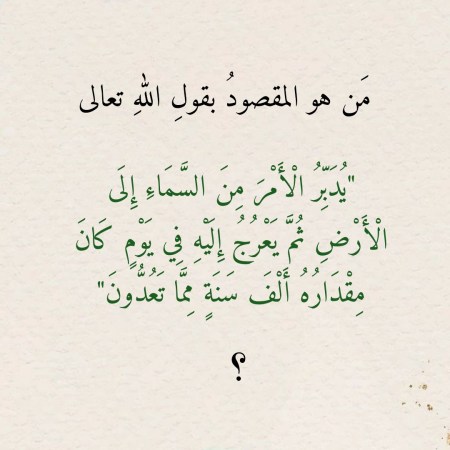 مَن هو المقصودُ بقولِ اللهِ تعالى
"يُدَبِّرُ الْأَمْرَ مِنَ السَّمَاءِ إِلَى
الْأَرْضِ ثُمَّ يَعْرُجُ إِلَيْهِ فِي يَوْمٍ كَانَ
مِقْدَارُهُ أَلْفَ سَنَةٍ مِمَّا تَعُدُّونَ"
؟